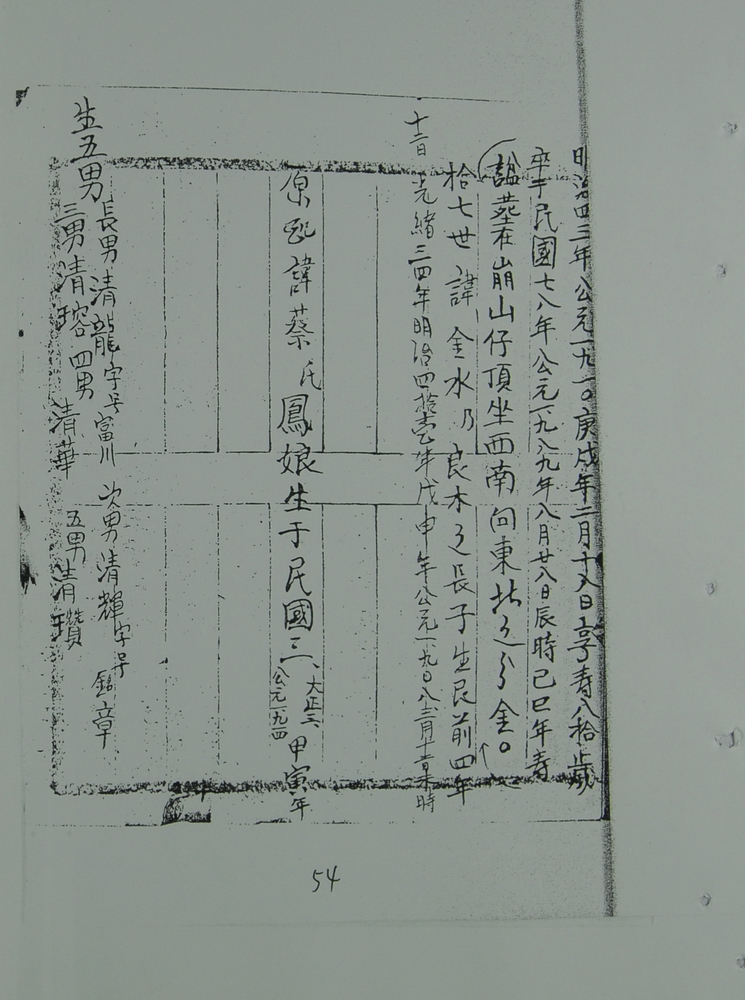 明治四三年公元一九一〇庚戌年二月十八日享壽八拾歲
卒于民國七八年公元一九八九年八月廿八日辰時己巳年壽
諡塟在崩山仔頂坐西南向東北之分金。
拾七世諱金水乃良木之長子生民前四年
光緒三四年明治四拾壹年戊申年公元一九〇八三月十二日未時
十二日
原配諱蔡氏鳳娘生于民國三、大正三公元一九一四甲寅年
生五男長男清龍字号富川次男清輝字号銘章
三男清瑢四男清華五男清瓚
54